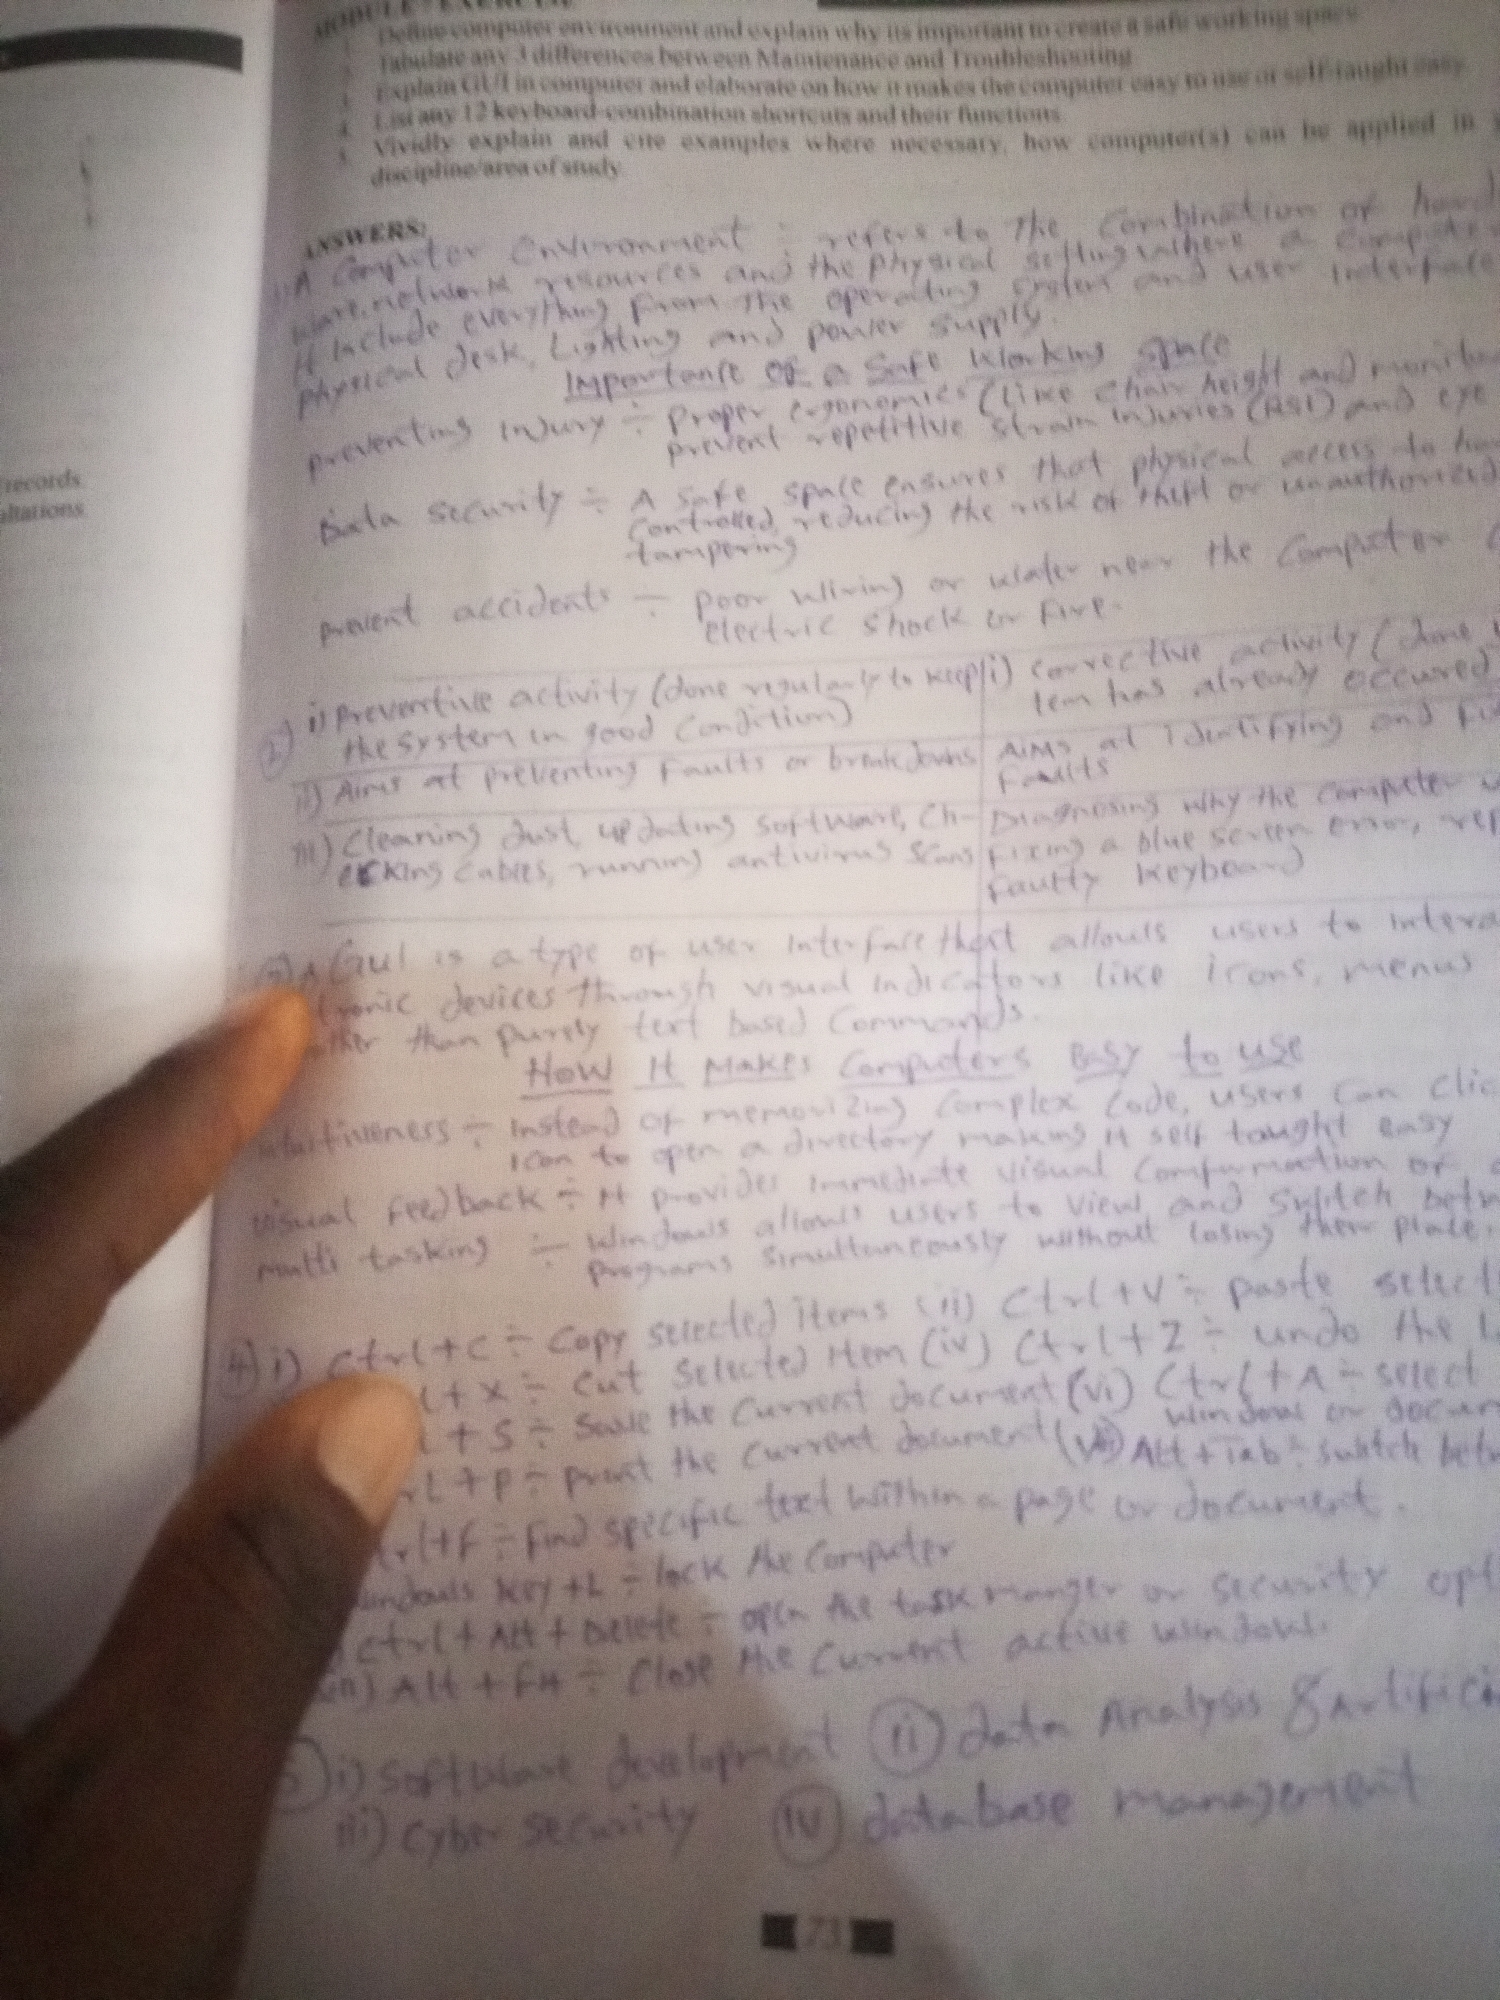 MODULE 7 EXERCISE
1. Define computer environment and explain why its important to create a safe working space
2. Tabulate any 3 differences between Maintenance and Troubleshooting
3. Explain GUI in computer and elaborate on how it makes the computer easy to use or self-taught easy
4. List any 12 keyboard-combination shortcuts and their functions.
5. Vividly explain and cite examples where necessary, how computer(s) can be applied in
discipline/area of study.
records.
ANSWERS:
1) A Computer Environment ÷ refers to the Combination of hard
ware, network resources and the physical setting where a computer
It include everything from the operating system and user interface
physical desk, Lighting and power supply.
Importance of a Safe Working space
preventing injury ÷ proper ergonomics (like chair height and monitor
prevent repetitive strain injuries (RSI) and eye
Data security ÷ A safe space ensures that physical access to
controlled, reducing the risk of theft or unauthorized
tampering
prevent accidents ÷ poor wiring or water near the Computer
electric shock or fire.
2) i) Preventive activity (done regularly to keep i) corrective activity (done
the system in good condition) tem has already occured
ii) Aims at preventing Faults or breakdowns Aims at identifying and
Faults
iii) Cleaning dust, updating software, Ch- Diagnosing why the computer
ecking cables, running antivirus scans Fixing a blue screen error,
faulty keyboard
3) A GUI is a type of user interface that allows users to
tronic devices through visual indicators like icons, menus
than purely text based Commands.
How It Makes Computers Easy to use
÷ instead of memorizing Complex Code, users can
icon to open a directory making it self taught easy
visual Feedback ÷ It provides immediate visual Comfirmation of
multi tasking ÷ Windows allows users to view and switch
programs simultaneously without losing their place.
4) i) Ctrl+C ÷ Copy selected items (ii) Ctrl+V ÷ paste
+X ÷ Cut Selected Item (iv) Ctrl+Z ÷ undo the
+S ÷ Save the Current document (vi) Ctrl+A ÷ select
window or
+P ÷ print the Current document Alt+Tab ÷ switch
+F ÷ Find specific text within a page or document.
key+L ÷ lock the Computer
Ctrl+Alt+Delete ÷ open the task manger or security
Alt+F4 ÷ Close the current active window.
i) Software development (ii) data Analysis &
iii) Cyber security (iv) database management
73